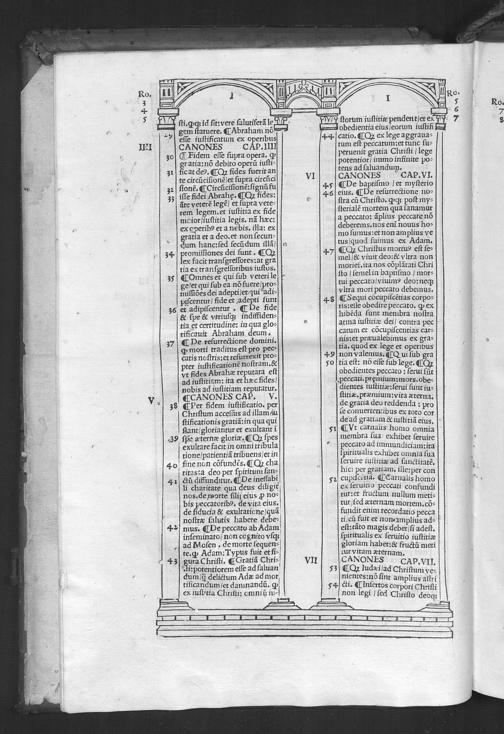 Ro.
3
4
5
I
sti, q̨q; id sit: vere salutiferā le
27 gem statuere. ¶ Abraham nō
esse iustificatum ex operibus
IIII CANONES CAP. IIII
30 ¶ Fidem esse supra opera. q̨
gratia: nō debito operū iusti
31
32
33
te circūcisionē: et supra circūci
sionē.
fuisse fidei Abrahę. ¶ Qz fides:
terem legem. et iustitia ex fide
maior iustitia legis. nā hæc:
ex operib⁹ et a nobis. illa: ex
gratia et a deo. et non secun
dum hanc: sed secūdum illā:
34 promissiones dei sunt. ¶ Qz
lex facit transgressores: at gra
tia ex transgressoribus iustos.
35 ¶ Omnes et qui sub veteri le
ge: et qui sub ea nō fuere: pro-
missiōes dei adepti: et qui adi-
piscentur: fide et adepti sunt
36 et adipiscentur. ¶ De fide
& spe & vtriusq; indiffiden-
tia et certitudine: in qua glo
rificauit Abraham deum.
37 ¶ De resurrectione domini.
q̨ morti traditus est pro pec-
catis nostris: et resurrexit pro-
pter iustificationē nostram. &
vt fides Abrahæ reputata est
ad iustitiam: ita et hæc fides:
nobis ad iustitiam reputatur.
V ¶ CANONES CAP. V.
38 ¶ Per fidem iustificatio. per
Christum accessus ad illam iu
stificationis gratiā: in qua qui
stant: gloriantur et exultant i
39 spe æternæ gloriæ. ¶ Qz spes
exultare facit in omni tribula
tione: patientiā tribuens: et in
40 fine non cōfundēs. ¶ Qz cha
ritas: ta a deo per spiritum san-
41 ctū diffunditur. ¶ De ineffabi
li charitate qua deus diligit
nos. de morte filij eius p̱ no-
bis peccatorib⁹. de vita eius.
de fiducia & exultatione: quā
nostræ salutis habere debe-
42 mus. ¶ De peccato ab Adam
inseminato: non cognito vsq;
ad Mosen. de morte sequen-
te. q̨ Adam: Typus fuit et fi-
43 gura Christi. ¶ Gratiā Chri-
sti: potentiorem esse ad saluan
dum: q̄ delictum Adæ ad mor
tificandum et damnandū. q̨
ex iustitia Christi: omniū iu-
Ro.
5
6
7
I
storum iustitiæ pendent: et ex
obedientia eius: eorum iustifi
44 catio. ¶ Qz ex lege aggraua-
tum est peccatum: et tunc su-
peruenit gratia Christi: lege
potentior: immo infinite po-
tens ad saluandum.
VI CANONES CAP. VI.
45 ¶ De baptismo: et mysterio
46 eius. ¶ De resurrectione no-
stra cū Christo. q̨ q; post my-
sterialē mortem qua sanamur
a peccato: āplius peccare nō
deberemus. nos em̄ nouus ho
mo sumus: et non amplius ve
tus: quod fuimus ex Adam.
47 ¶ Qz Christus mortu⁹ est se-
mel: & viuit deo: & vltra non
morief. ita nos cōplātati Chri
sto: semel in baptismo: mor-
tui peccato: viuim⁹ deo: neq;
vltra mori peccato debemus.
48 ¶ Sequi cōcupiscētias corpo-
ris: esse obedire peccato. q̨ ex
hibēda sunt membra nostra
arma iustitiæ dei: contra pec
catum et cōcupiscentias car-
nis: et præualebimus ex gra-
tia. quod ex lege et operibus
49 non valemus. ¶ Qui sub gra
50 tia est: nō esse sub lege. ¶ Qz
obedientes peccato: serui sūt
peccati. premium: mors. obe-
dientes iustitiæ: serui sunt iu-
stitiæ. præmium: vita æterna.
de gratia deo reddenda: p̱ro
se conuertentibus ex toto cor
de ad gratiam & iustitiā eius.
51 ¶ Vt carnalis homo omnia
membra sua exhibet seruire
peccato ad immundiciam: ita
spiritualis exhibet omnia sua
seruire iustitiæ ad sanctitatē.
hic: per gratiam. ille: per con
52 cupiscētiā. ¶ Carnalis homo
ex seruitio peccati confundi
tur: et fructum nullum meti-
tur: sed æternam mortem. cō-
fundit enim recordatio pecca
ti. cū fuit et non amplius ad-
est: tāto magis debet si adest.
spiritualis ex seruitio iustitiæ
gloriam habet: & fructū meti
tur vitam æternam.
VII CANONES CAP. VII.
53 ¶ Qz Iudæi: ad Christum ve-
nientes: nō sint amplius astri
54 cti. ¶ Insertos corpori Christi
non legi: sed Christo deoq;
Ro.
7
8